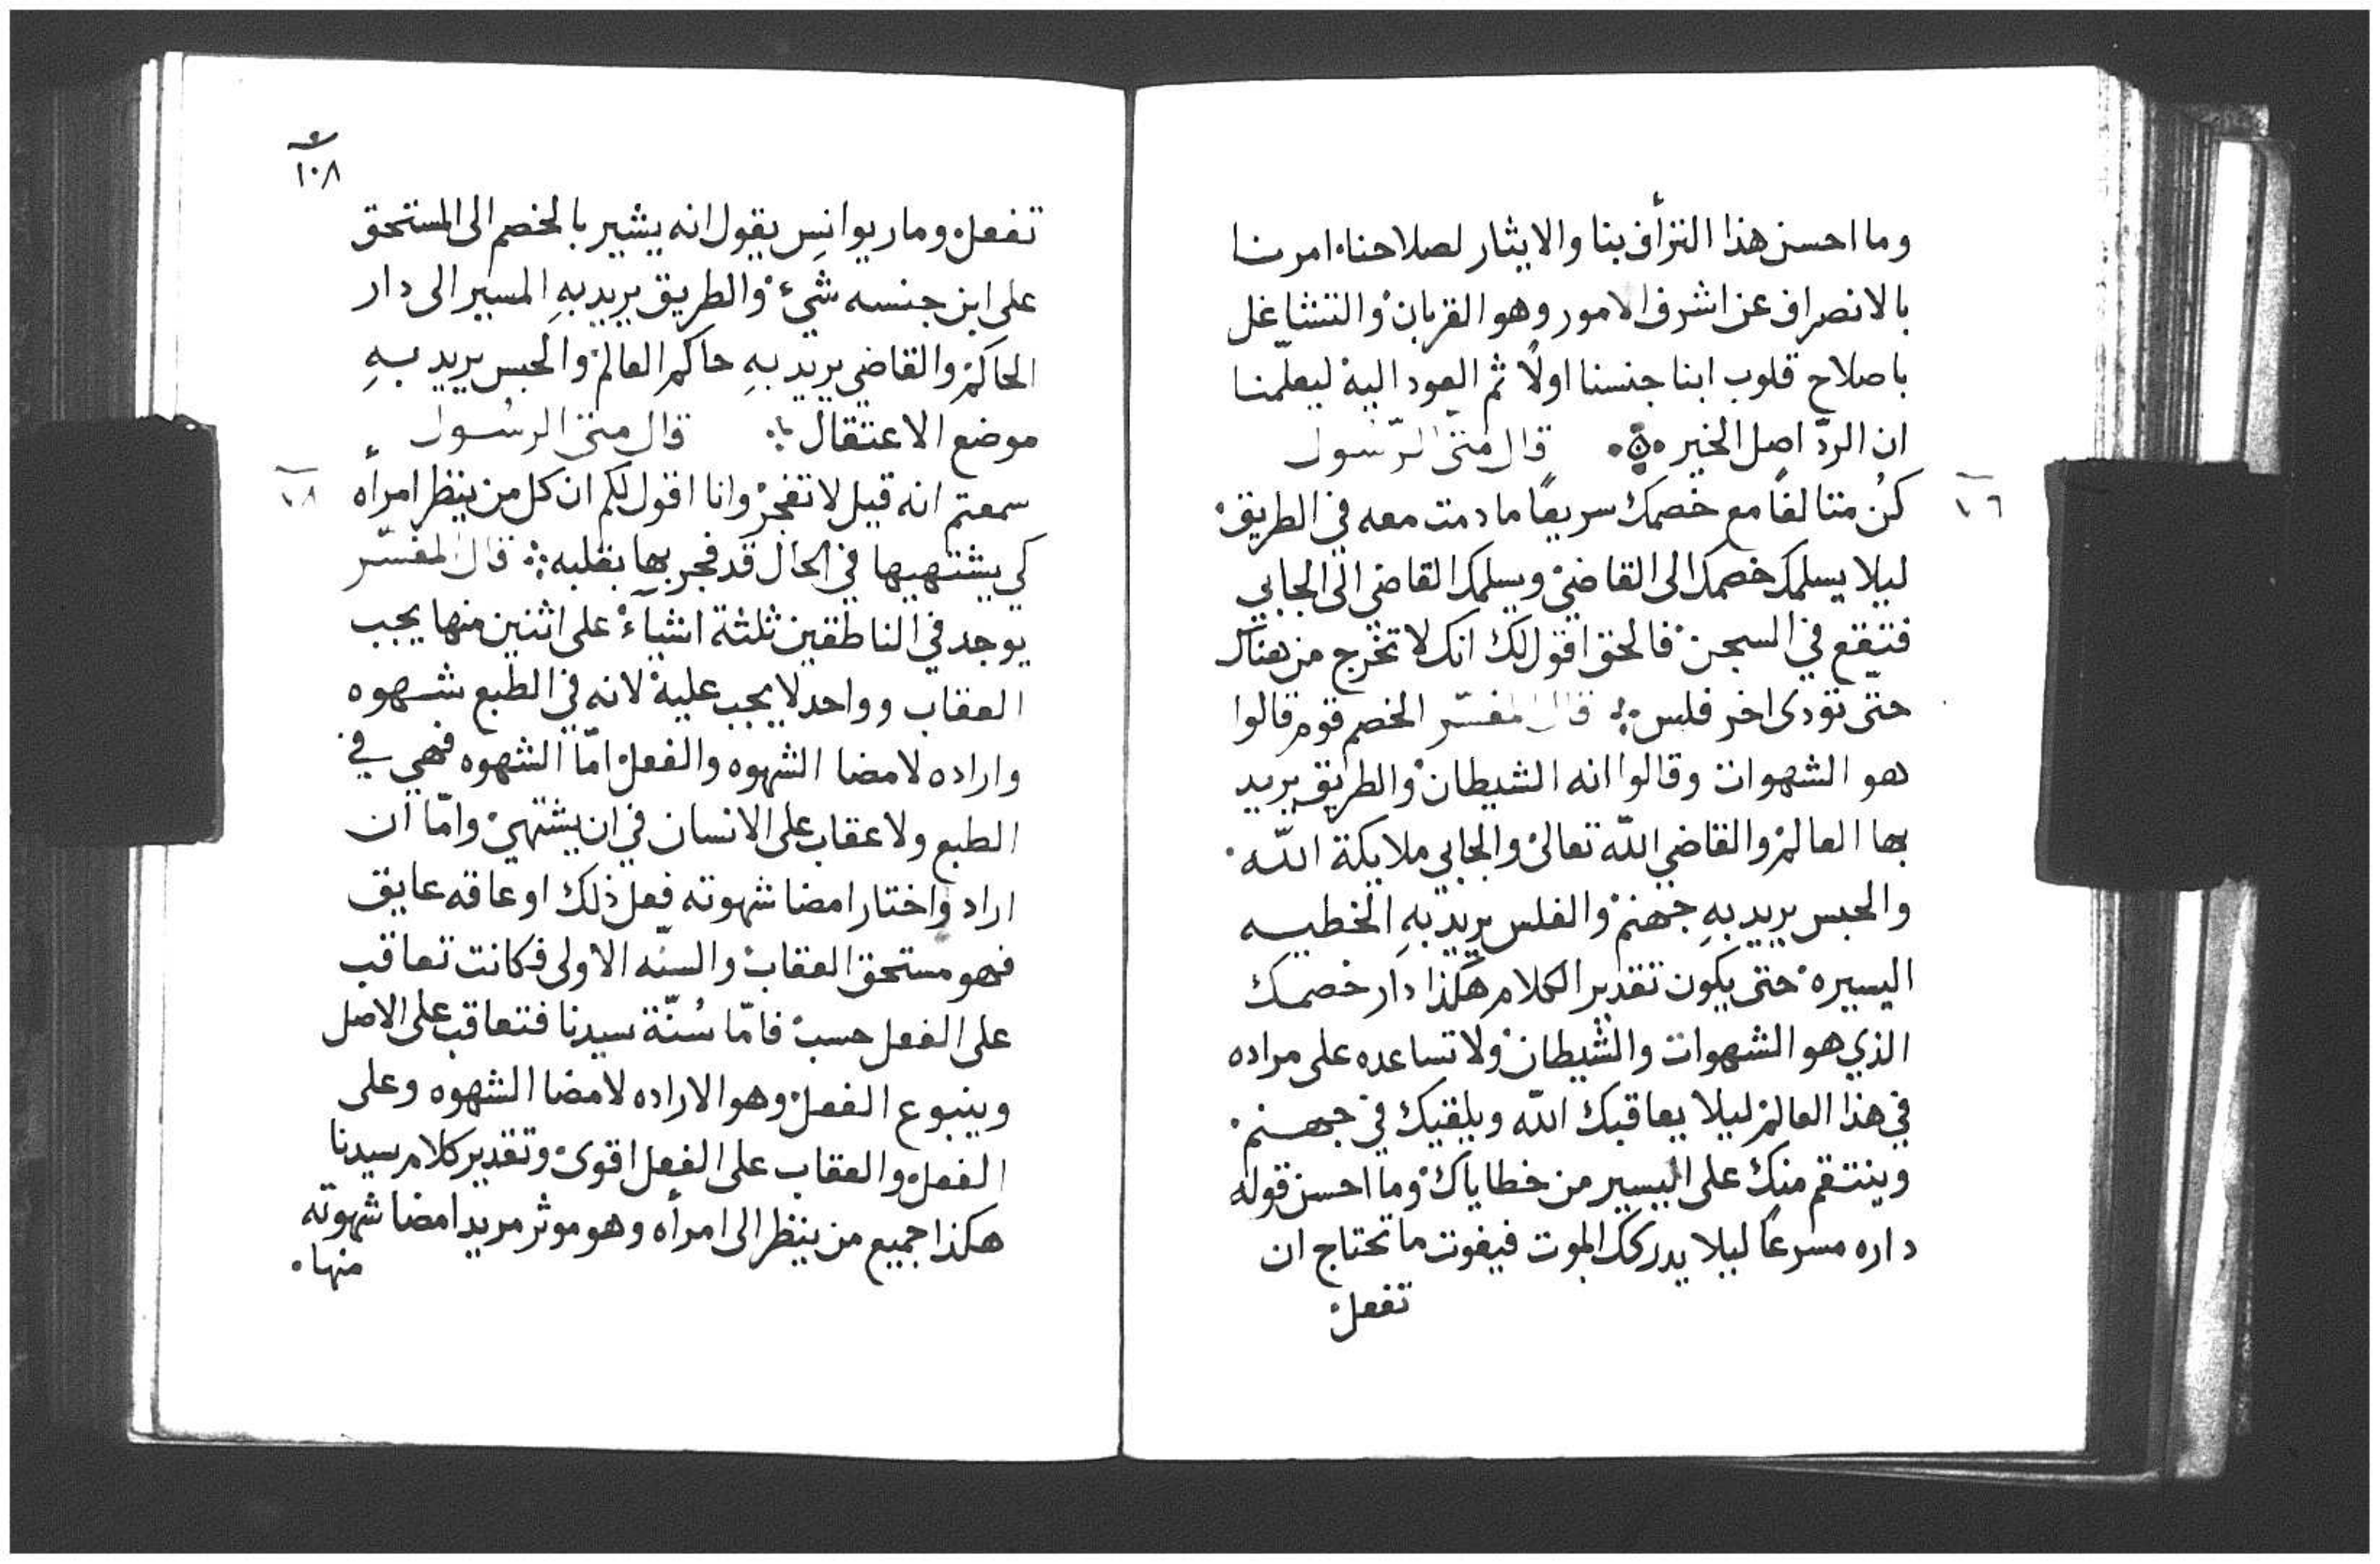 وما احسن هذا التراف بنا والايثار لصلاحنا امرنا
بالانصراف عن اشرف الامور وهو القربان والتشاغل
باصلاح قلوب ابنا جنسنا اولًا ثم العود اليه ليعلّمنا
ان الردّ اصل الخير قال متى الرّسول
١٦
كُن متالفًا مع خصمك سريعًا ما دمت معه في الطريق
ليلا يسلمك خصمك الى القاضي ويسلمك القاضي الى الجابي
فتقع في السجن فالحق اقول لك انك لا تخرج من هناك
حتّى تودى اخر فلس قال المفسّر الخصم قوم قالوا
هو الشهوات وقالوا انه الشيطان والطريق يريد
بها العالم والقاضي اللّه تعالى والجابي ملايكة اللّه
والحبس يريد بهِ جهنم والفلس يريد بهِ الخطيه
اليسيره حتى يكون تقدير الكلام هكذا دار خصمك
الذي هو الشهوات والشيطان ولا تساعده على مراده
في هذا العالم ليلا يعاقبك اللّه ويلقيك في جهنم
وينتقم منك على اليسير من خطاياك وما احسن قوله
داره مسرعًا ليلا يدركك الموت فيفوت ما تحتاج ان
تفعل
١٠٨
تفعل وماريوانِس يقول انه يشير بالخصم الى المستحق
على ابن جنسه شيء والطريق يريد بهِ المسير الى دار
الحاكم والقاضي يريد بهِ حاكم العالم والحبس يريد بهِ
موضع الاعتقال قال متى الرسُول
سمعتم انه قيل لا تفجر وانا اقول لكم ان كل من ينظر امرأه
كي يشتهيها في الحال قد فجر بها بقلبه قال المفسّر
يوجد في الناطقين ثلثة اشياء على اثنين منها يجب
العقاب وواحد لا يجب عليه لانه في الطبع شهوه
واراده لامضا الشهوه والفعل امّا الشهوه فهي في
الطبع ولا عقاب على الانسان في ان يشتهي وامّا ان
اراد واختار امضا شهوته فعل ذلك او عاقه عايق
فهو مستحق العقاب والسنّه الاولى فكانت تعاقب
على الفعل حسب فامّا سُنّة سيدنا فتعاقب على الاصل
وينبوع الفعل وهو الاراده لامضا الشهوه وعلى
الفعل والعقاب على الفعل اقوى وتقدير كلام سيدنا
هكذا جميع من ينظر الى امرأه وهو موثر مريد امضا شهوته
منها